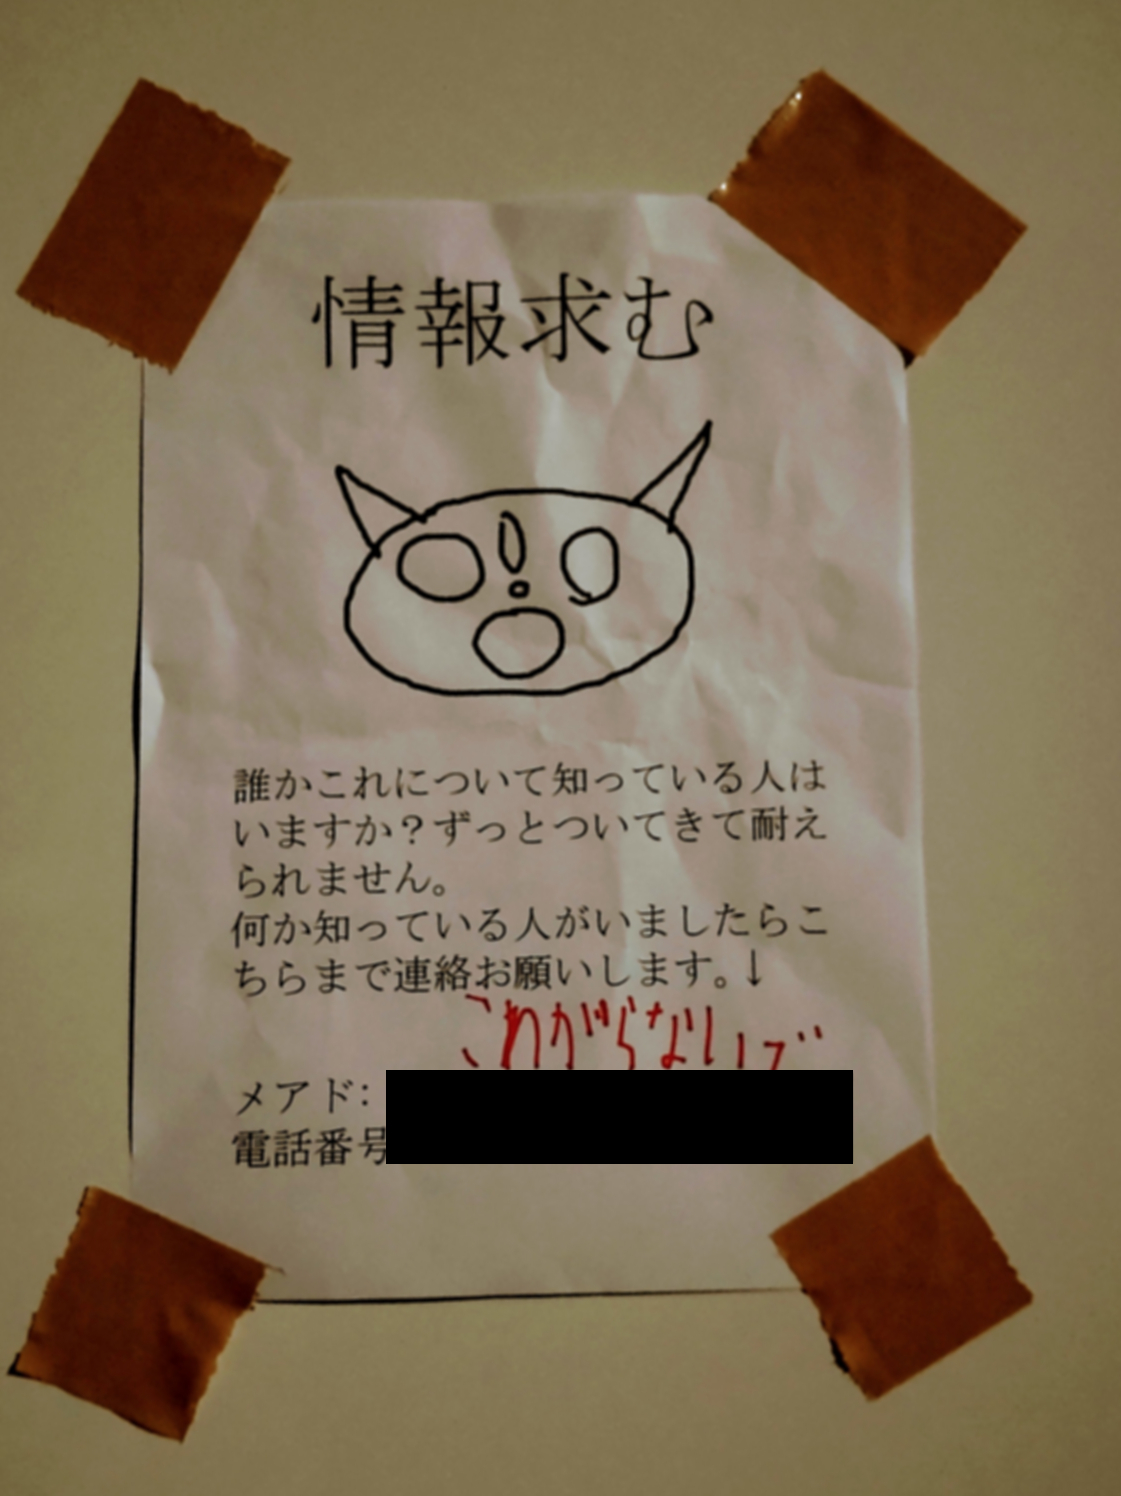 情報求む
誰かこれについて知っている人は
いますか？ずっとついてきて耐え
られません。
何か知っている人がいましたらこ
ちらまで連絡お願いします。↓
こわがらないで
メアド：
電話番号